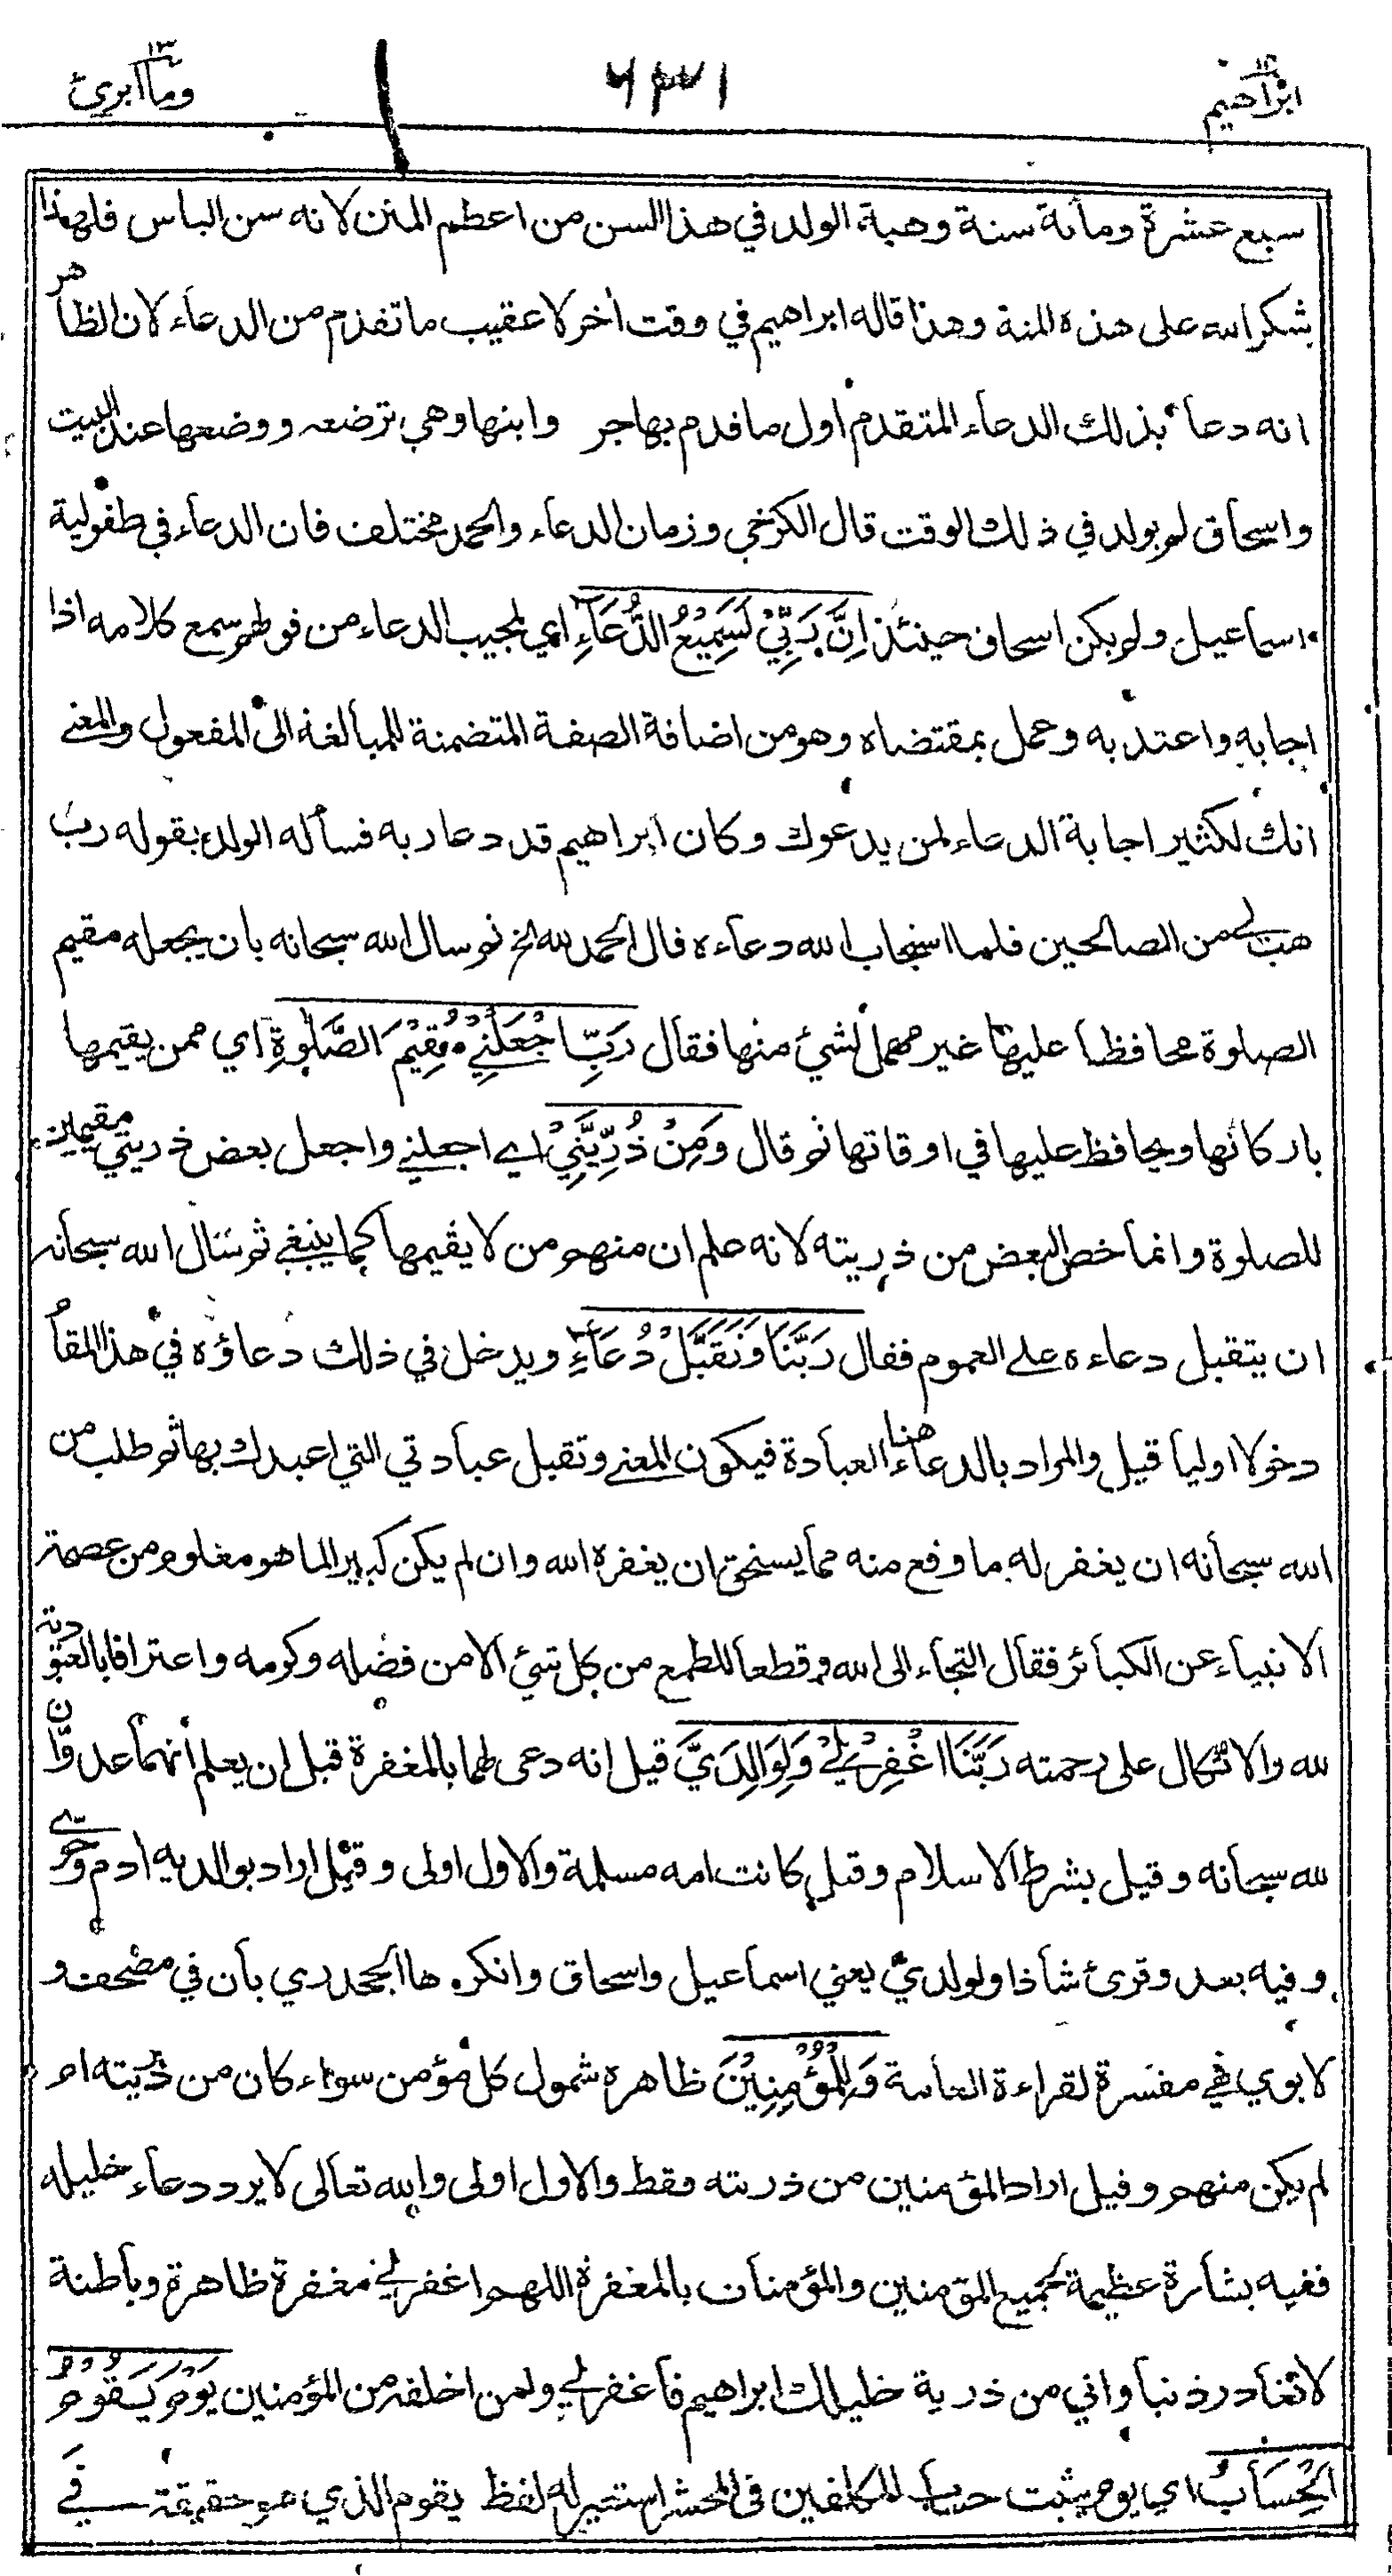 ابراهيم ١٤
٦٣١
وما ابرئ ١٣
سبع عشرة ومائة سنة وهبة الولد في هذا السن من اعظم المنن لانه سن الياس فلهذا
شكر الله على هذه المنة وهذا قاله ابراهيم في وقت أخر لا عقيب ما تقدم من الدعاء لان الظاهر
انه دعا بذلك الدعاء المتقدم اول ما قدم بهاجر وابنها وهي ترضعه ووضعها عند البيت
واسحاق لم يولد في ذلك الوقت قال الكرخي وزمان الدعاء والحمد مختلف فان الدعاء في طفولية
اسماعيل ولم يكن اسحاق حينئذ اِنَّ رَبِّيْ لَسَمِيْعُ الدُّعَاءِ اي لمجيب الدعاء من قولهم سمع كلامه اذا
اجابه واعتد به وعمل بمقتضاه وهو من اضافة الصفة المتضمنة للمبالغة الى المفعول والمعنے
انك لكثير اجابة الدعاء لمن يدعوك وكان ابراهيم قد دعا ربه فسأله الولد بقوله رب
هب لے من الصالحين فلما استجاب الله دعاءه قال الحمد لله الخ ثم سال الله سبحانه بان يجعله مقيم
الصلوة محافظا عليها غير مهمل لشيئ منها فقال رَبِّ اجْعَلْنِيْ مُقِيْمَ الصَّلٰوةِ اي ممن يقيمها
باركانها ويحافظ عليها في اوقاتها ثم قال وَمِنْ ذُرِّيَّتِيْ اے اجعلنے واجعل بعض ذريتي مقيمين
للصلوة وانما خص البعض من ذريته لانه علم ان منهم من لا يقيمها كما ينبغي ثم سال الله سبحانه
ان يتقبل دعاءه علے العموم فقال رَبَّنَا وَتَقَبَّلْ دُعَاءِ ويدخل في ذلك دعاؤه في هذا المقام
دخولا اوليا قيل والمراد بالدعاء هنا العبادة فيكون المعنے وتقبل عبادتي التي اعبدك بها ثم طلب من
الله سبحانه ان يغفر له ما وقع منه مما يستحق ان يغفره الله وان لم يكن كبيرا لما هو معلوم من عصمة
الانبياء عن الكبائر فقال التجاء الى الله وقطعا للطمع من كل شيئ الا من فضله وكرمه واعترافا بالعبودية
لله والاتكال على رحمته رَبَّنَا اغْفِرْ لِيْ وَلِوَالِدَيَّ قيل انه دعى لهما بالمغفرة قبل ان يعلم انهما عدوان
لله سبحانه وقيل بشرط الاسلام وقيل كانت امه مسلمة والاول اولى وقيل اراد بوالديه ادم وحوے
وفيه بعد وقرئ شاذا ولولديّ يعني اسماعيل واسحاق وانكرها الجحدري بان في مصحف و
لابوي فهي مفسرة لقراءة العامة وَلِلْمُؤْمِنِيْنَ ظاهره شمول كل مؤمن سواء كان من ذريته ام
لم يكن منهم وقيل اراد المؤمنين من ذريته فقط والاول اولى والله تعالى لا يرد دعاء خليله
ففيه بشارة عظيمة لجميع المؤمنين والمؤمنات بالمغفرة اللهم اغفر لي مغفرة ظاهرة وباطنة
لا تغادر ذنبا واني من ذرية خليلك ابراهيم فاغفر لي ولمن اخلفه من المؤمنين يَوْمَ يَقُوْمُ
الْحِسَابُ اي يوم يثبت حساب المكلفين في المحشر استعير له لفظ يقوم الذي هو حقيقة في